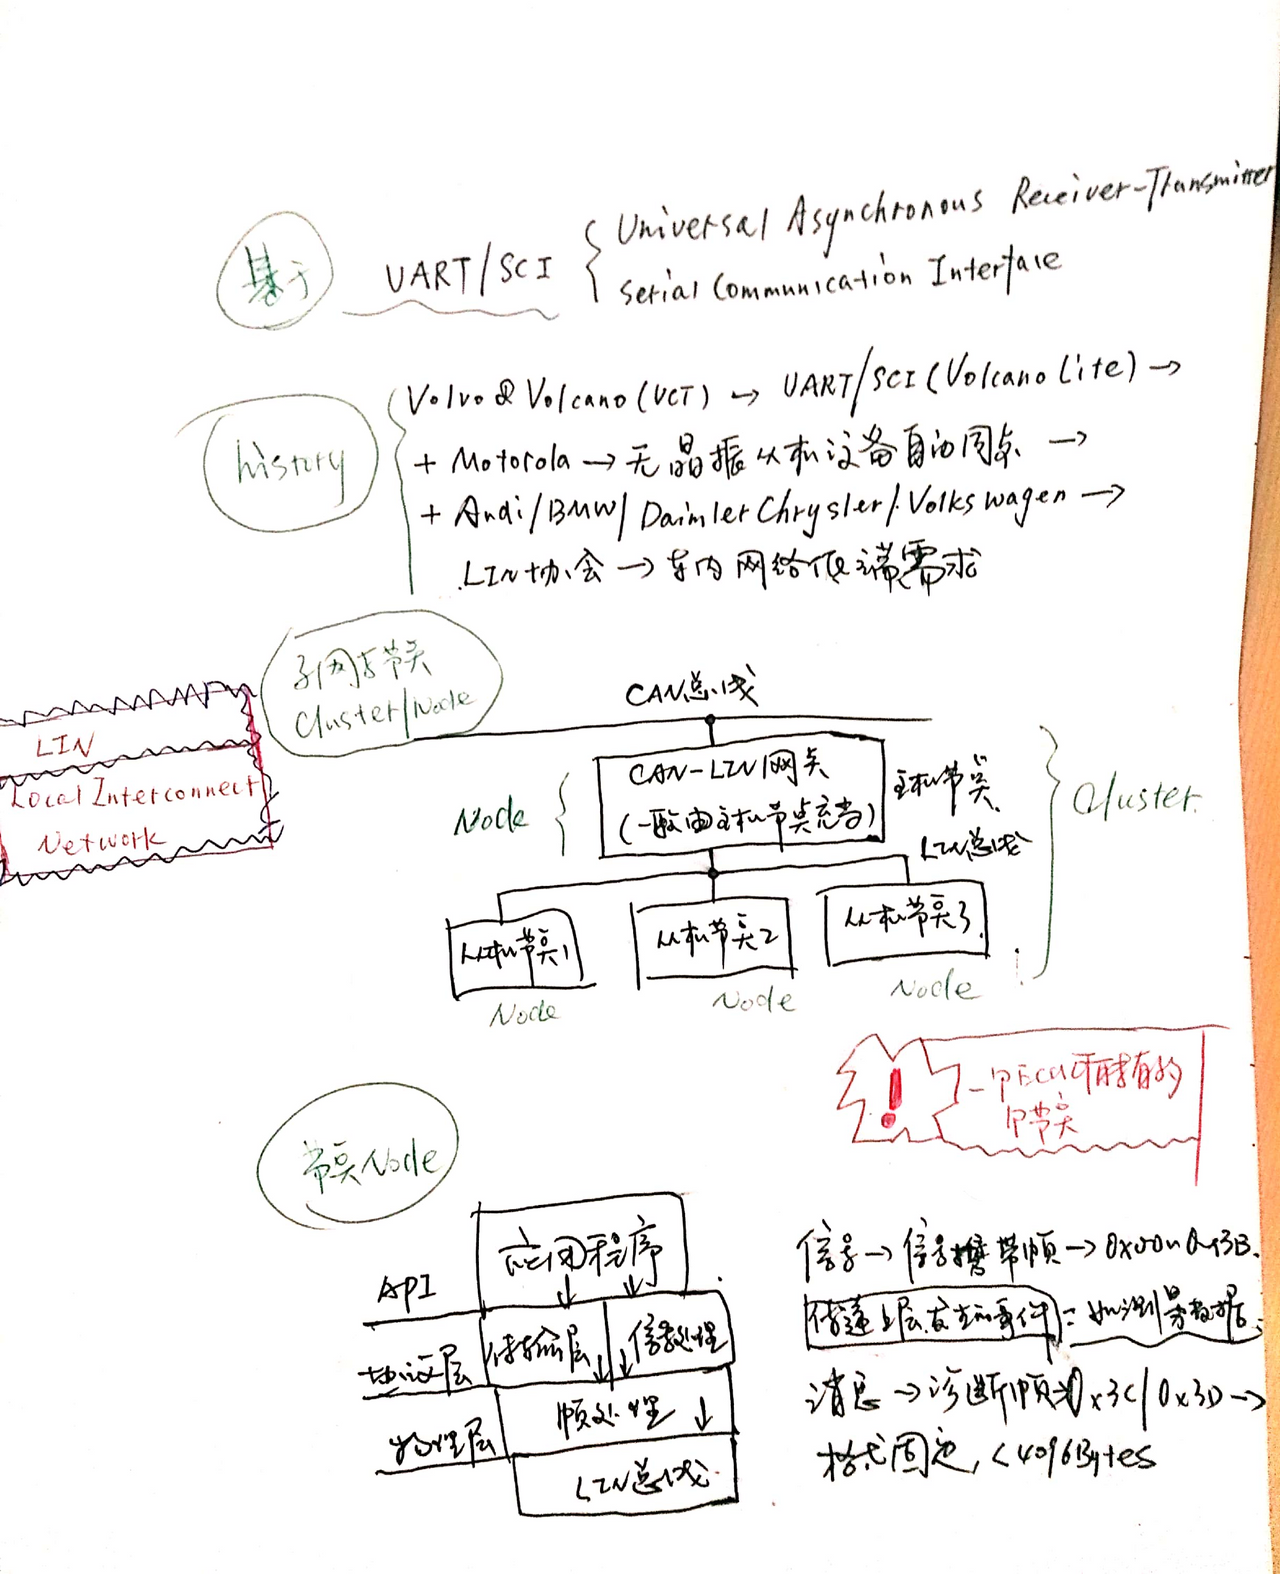 基于
UART/SCI
Universal Asynchronous Receiver-Transmitter
Serial Communication Interface
history
Volvo & Volcano (VCT) → UART/SCI (Volcano Lite) →
+ Motorola → 无晶振从机设备自动同步 →
+ Audi/BMW/DaimlerChrysler/Volkswagen →
LIN协会 → 车内网络低端需求
LIN
Local Interconnect
Network
子网与节点
Cluster/Node
CAN总线
Node
CAN-LIN网关
(一般由主机节点充当)
主机节点
LIN总线
Cluster
从机节点1
从机节点2
从机节点3
Node
Node
Node
!
一个ECU可能有
个节点
节点Node
API
协议层
物理层
应用程序
传输层
信号处理
帧处理
LIN总线
信号 → 信号携带帧 → 0x00~0x3B
传递上层
消息 → 诊断帧 0x3C/0x3D →
格式固定, <4096Bytes